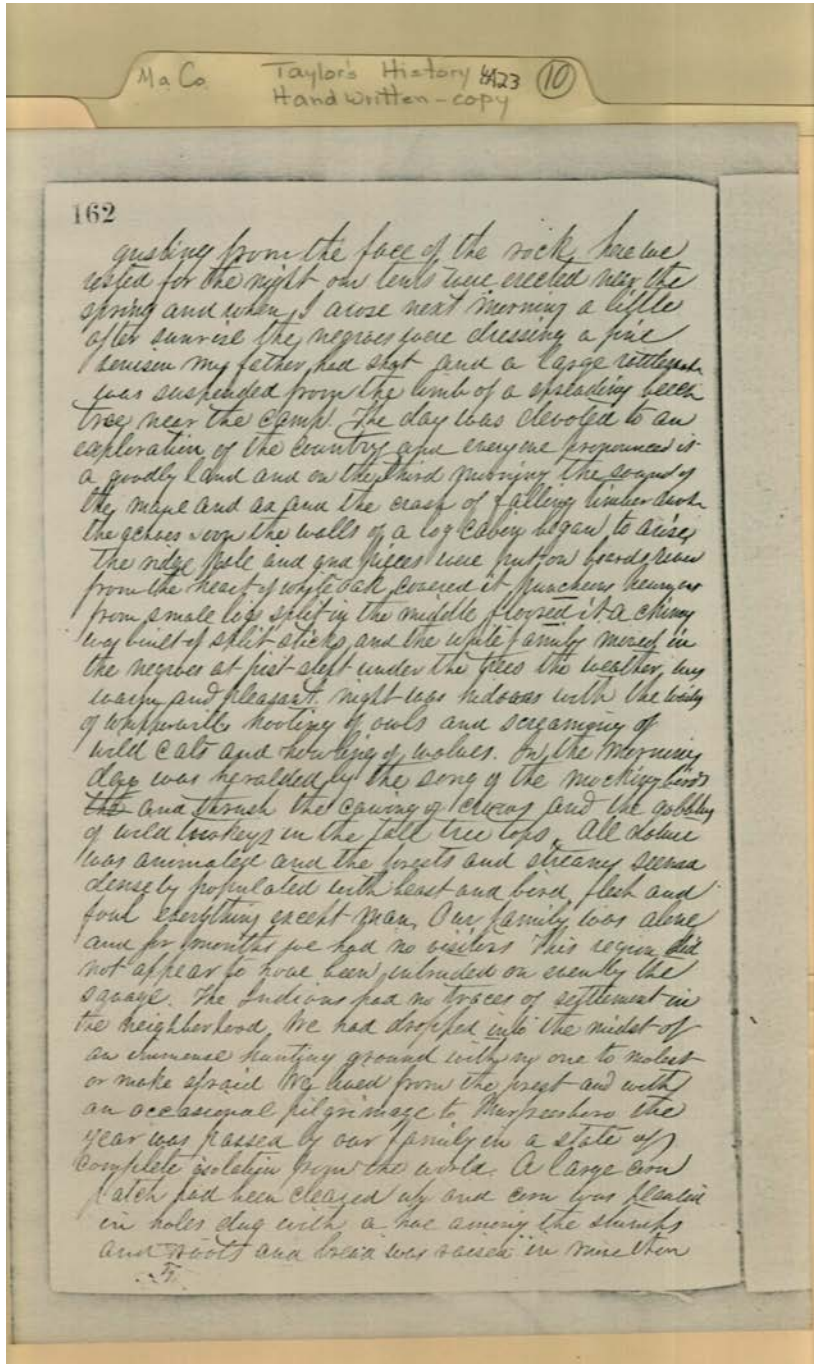 Ma Co. Taylor's History 4A23 10
Handwritten-copy
162
gushing from the face of the rock, here we
rested for the night our tents were erected near the
spring and when I arose next morning a little
after sunrise the negroes were dressing a fine
venison my father had shot and a large
was suspended from the limb of a spreading beech
tree near the camp. The day was devoted to an
exploration of the country and everyone pronounced it
a goodly land and on the third morning the sound of
the maul and ax and the crash of falling timber
the echoes soon the walls of a log cabin began to arise,
the ridge pole and end pieces were put on boards riven
from the heart of white oak covered it puncheons
from small logs split in the middle floored it a chimney
was built of split sticks and the white family moved in
the negroes at first slept under the trees the weather was
warm and pleasant. night was with the
of whipperwills hooting of owls and screaming of
wild cats and howling of wolves. In the morning
day was heralded by the song of the mocking birds
the and thrush the cawing of crows and the gobbling
of wild turkeys in the tall tree tops. All nature
was animated and the forests and streams seemed
densely populated with beast and bird, flesh and
foul everything except man. Our family was alone
and for months we had no visitors This region did
not appear to have been intruded on even by the
savage. The Indians had no traces of settlement in
the neighborhood. We had dropped into the midst of
an immense hunting ground with no one to molest
or make afraid We lived from the and with
an occasional pilgrimage to the
year was passed by our family in a state of
complete isolation from the world. A large corn
patch had been cleared up and corn was planted
in holes dug with a hoe among the stumps
and roots and bread was raised in